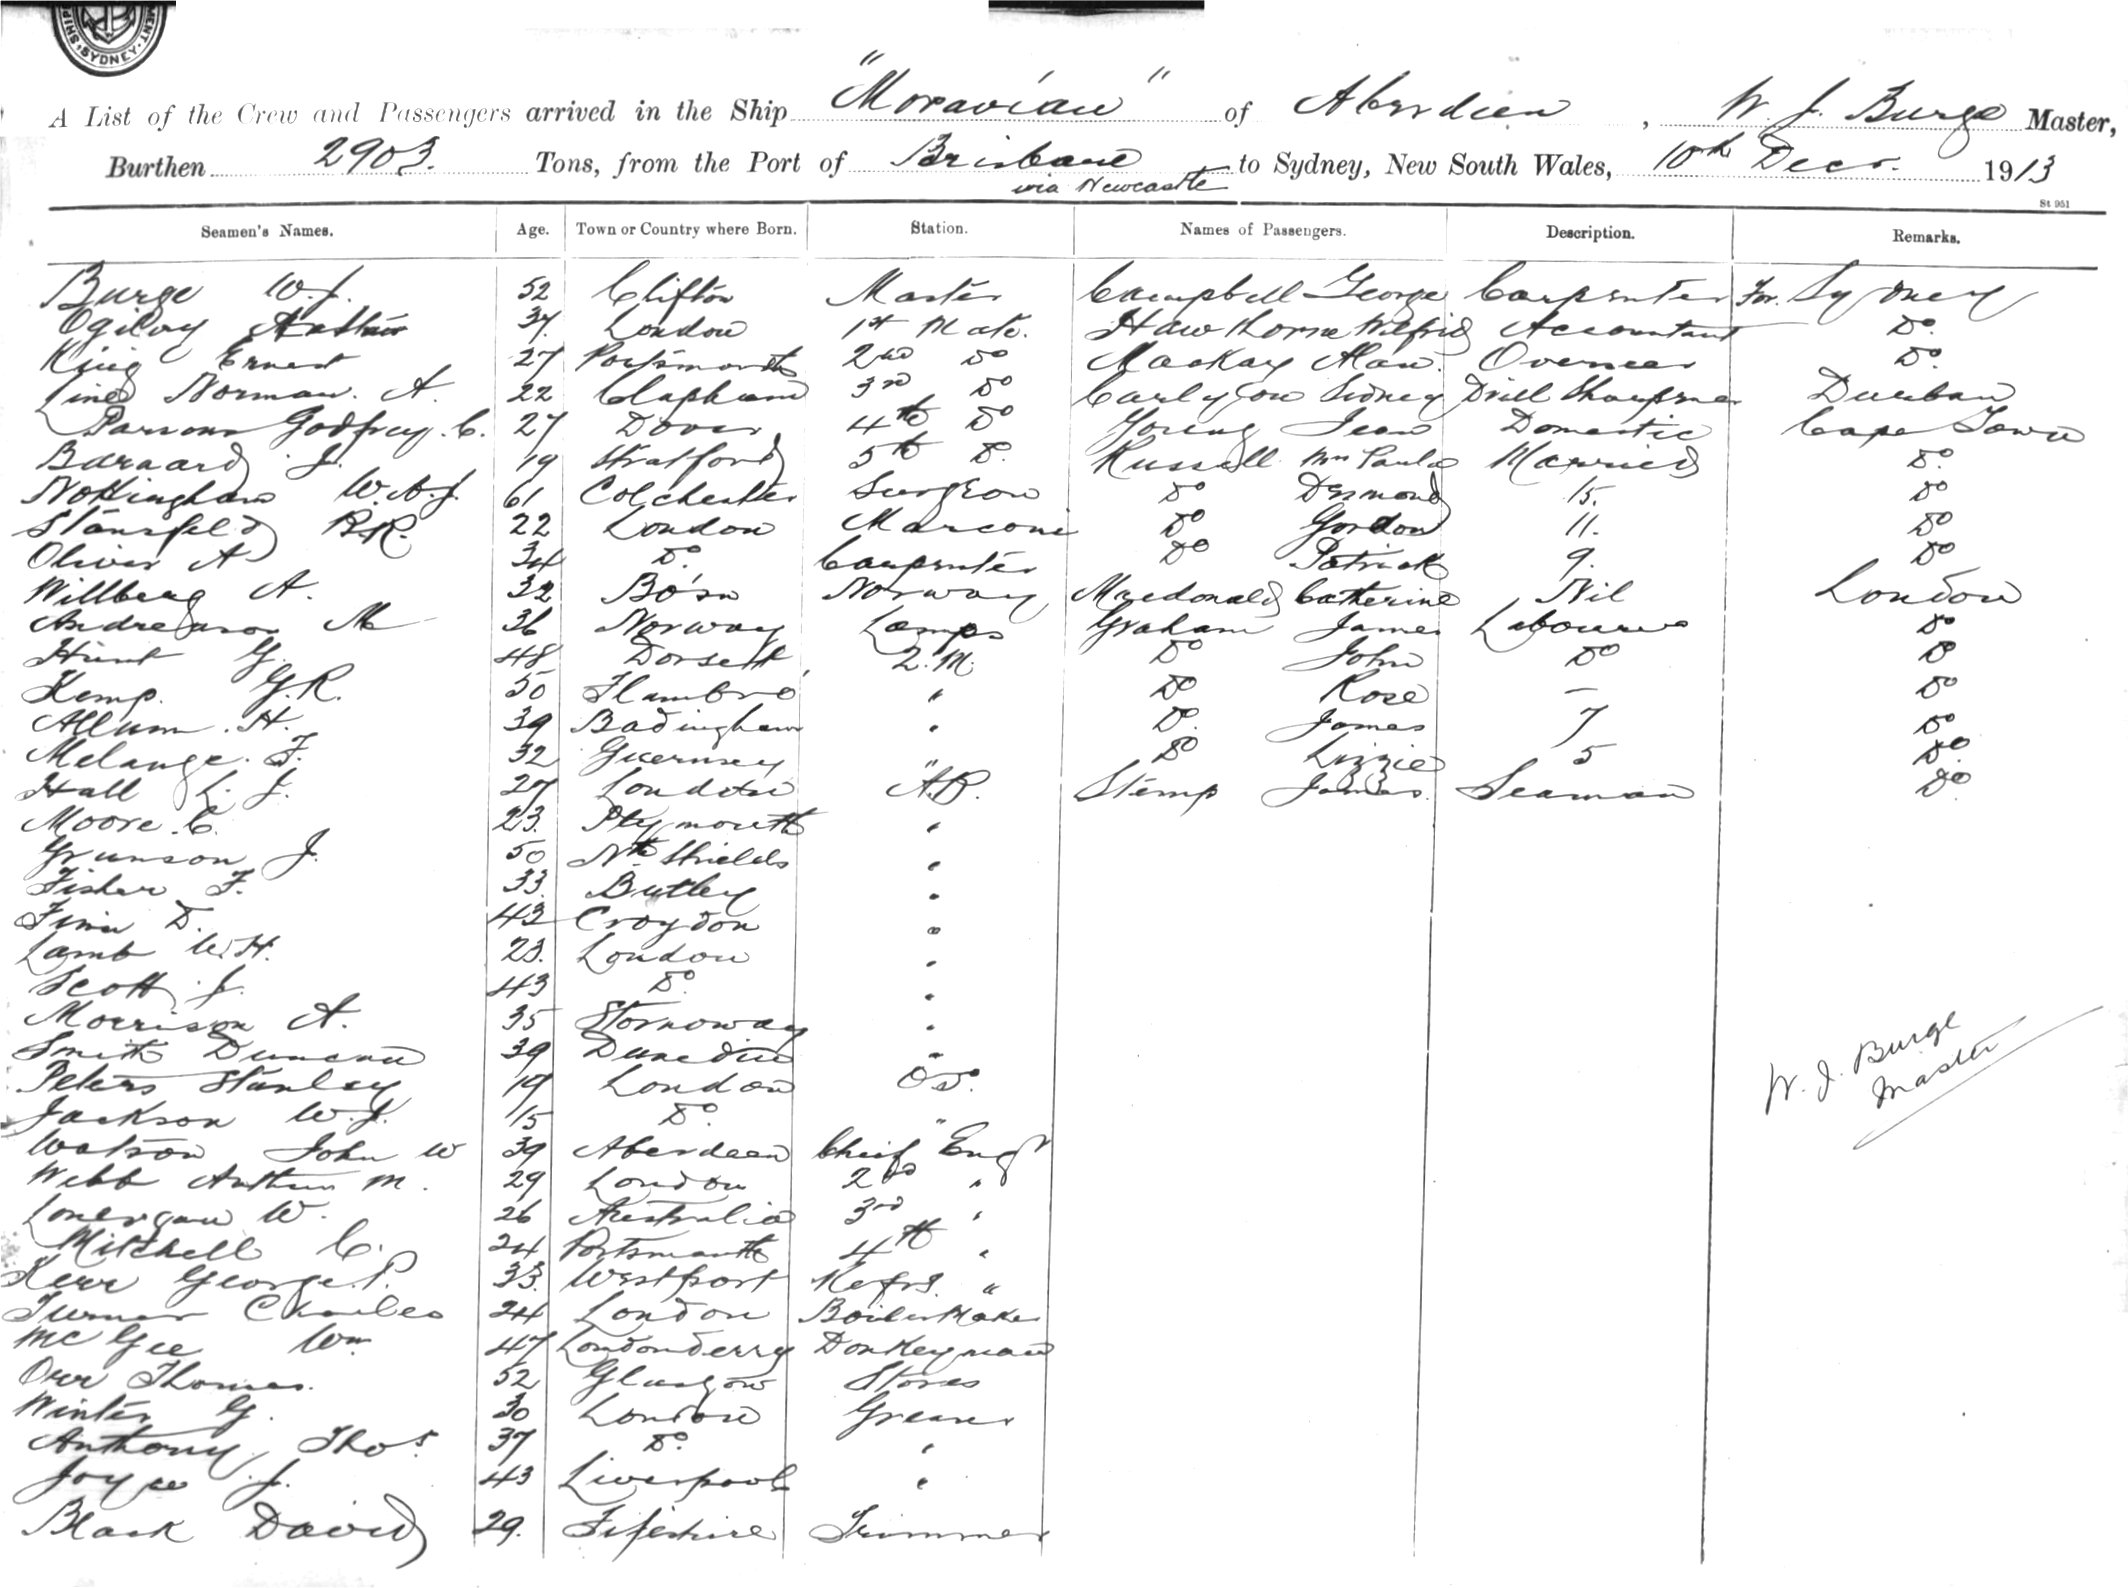 SYDNEY
A List of the Crew and Passengers arrived in the Ship "Moravian" of Aberdeen, W. J. Burge Master,
Burthen 2903. Tons, from the Port of Brisbane via Newcastle to Sydney, New South Wales, 10th Decr. 1913
St 951
Seamen's Names. Age. Town or Country where Born. Station. Names of Passengers. Description. Remarks.
Burge W.J. 52 Clifton Master Campbell George Carpenter For Sydney
Ogilvy Arthur 37. London 1st Mate. Hawthorne Wilfrid Accountant Do.
King Ernest 27 Portsmouth 2nd Do Mackay Alan. Overseer Do.
Lines Norman. A. 22 Clapham 3rd Do Carlyon Sidney Drill Sharpener Durban
Parsons Godfrey. C. 27 Dover 4th Do Young Jean Domestic Cape Town
Baraard J. 19 Stratford 5th Do. Russell Mrs Paula Married Do.
Nottingham W.A.J. 61 Colchester Surgeon Do Desmond 15. Do
Stansfeld R.R. 22 London Marconi Do Gordon 11. Do
Oliver A 34 Do. Carpenter Do Patrick 9. Do
Willberg A. 32 Bo'sn Norway Macdonald Catherine Nil London
Andreason M 36 Norway Lamps Graham James Labourer Do
Hunt G. 48 Dorsett 2. M. Do John Do Do
Kemp. G.R. 50 Flambro' " Do Rose — Do
Allum. H. 39 Badingham " Do. James 7 Do
Melange. F. 32 Guernsey " Do Lizzie 5 Do.
Hall L. J. 27 London A.B. Stemp James. Seaman Do.
Moore. C. 23. Plymouth "
Grunson J. 50 Nth Shields "
Fisher F. 33. Butley "
Finn D. 43 Croydon "
Lamb W.H. 23. London "
Scott. J. 43 Do. "
Morrison A. 35 Stornoway "
Smith Duncan 39 Dunedin "
Peters Stanley 19 London O.S.
Jackson W.J. 15 Do. "
Watson John W 39 Aberdeen Chief Engr
Webb Arthur M. 29 London 2nd "
Lonergan W. 26 Australia 3rd "
Mitchell C. 24 Portsmouth 4th "
Kerr George. P. 33. Westport Refrg. "
Turner Charles 24 London Boilermaker
McGee Wm 47 Londonderry Donkeyman
Orr Thomas. 52 Glasgow Stores
Winter G. 30 London Greaser
Anthony Thos. 37 Do. "
Joyce J. 43 Liverpool "
Black David 29. Fifeshire Trimmer
W. J. Burge
Master